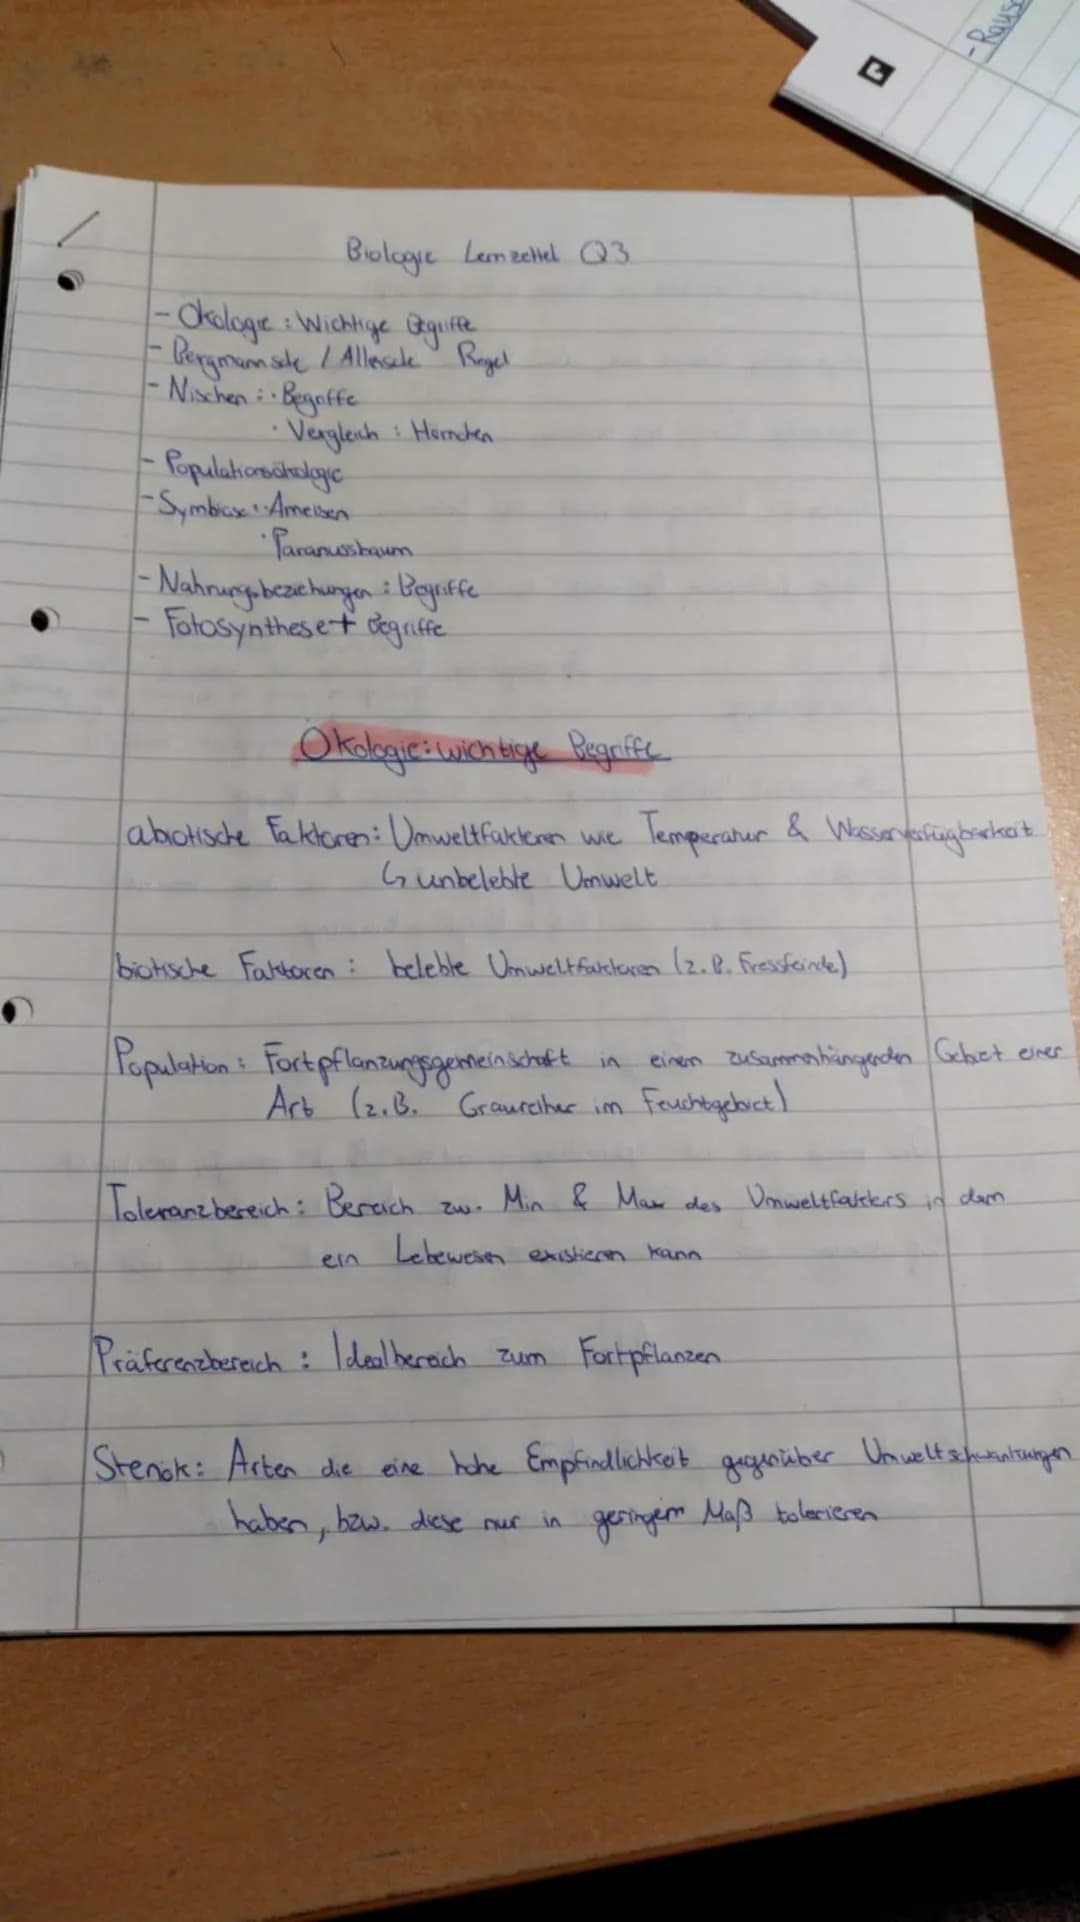 - Rausc
Biologie Lernzettel Q3
- Ökologie: Wichtige Begriffe
- Bergmannsche / Allensche Regel
- Nischen: · Begriffe
· Vergleich: Hörnchen
- Populationsökologie
- Symbiose: · Ameisen
· Paranussbaum
- Nahrungsbeziehungen: Begriffe
- Fotosynthese + Begriffe
Ökologie: wichtige Begriffe
abiotische Faktoren: Umweltfaktoren wie Temperatur & Wasserverfügbarkeit
↳ unbelebte Umwelt
biotische Faktoren: belebte Umweltfaktoren (z.B. Fressfeinde)
Population: Fortpflanzungsgemeinschaft in einem zusammenhängenden Gebiet einer
Art (z.B. Graureiher im Feuchtgebiet)
Toleranzbereich: Bereich zw. Min & Max des Umweltfaktors, in dem
ein Lebewesen existieren kann
Präferenzbereich: Idealbereich zum Fortpflanzen
Stenök: Arten die eine hohe Empfindlichkeit gegenüber Umweltschwankungen
haben, bzw. diese nur in geringem Maß tolerieren